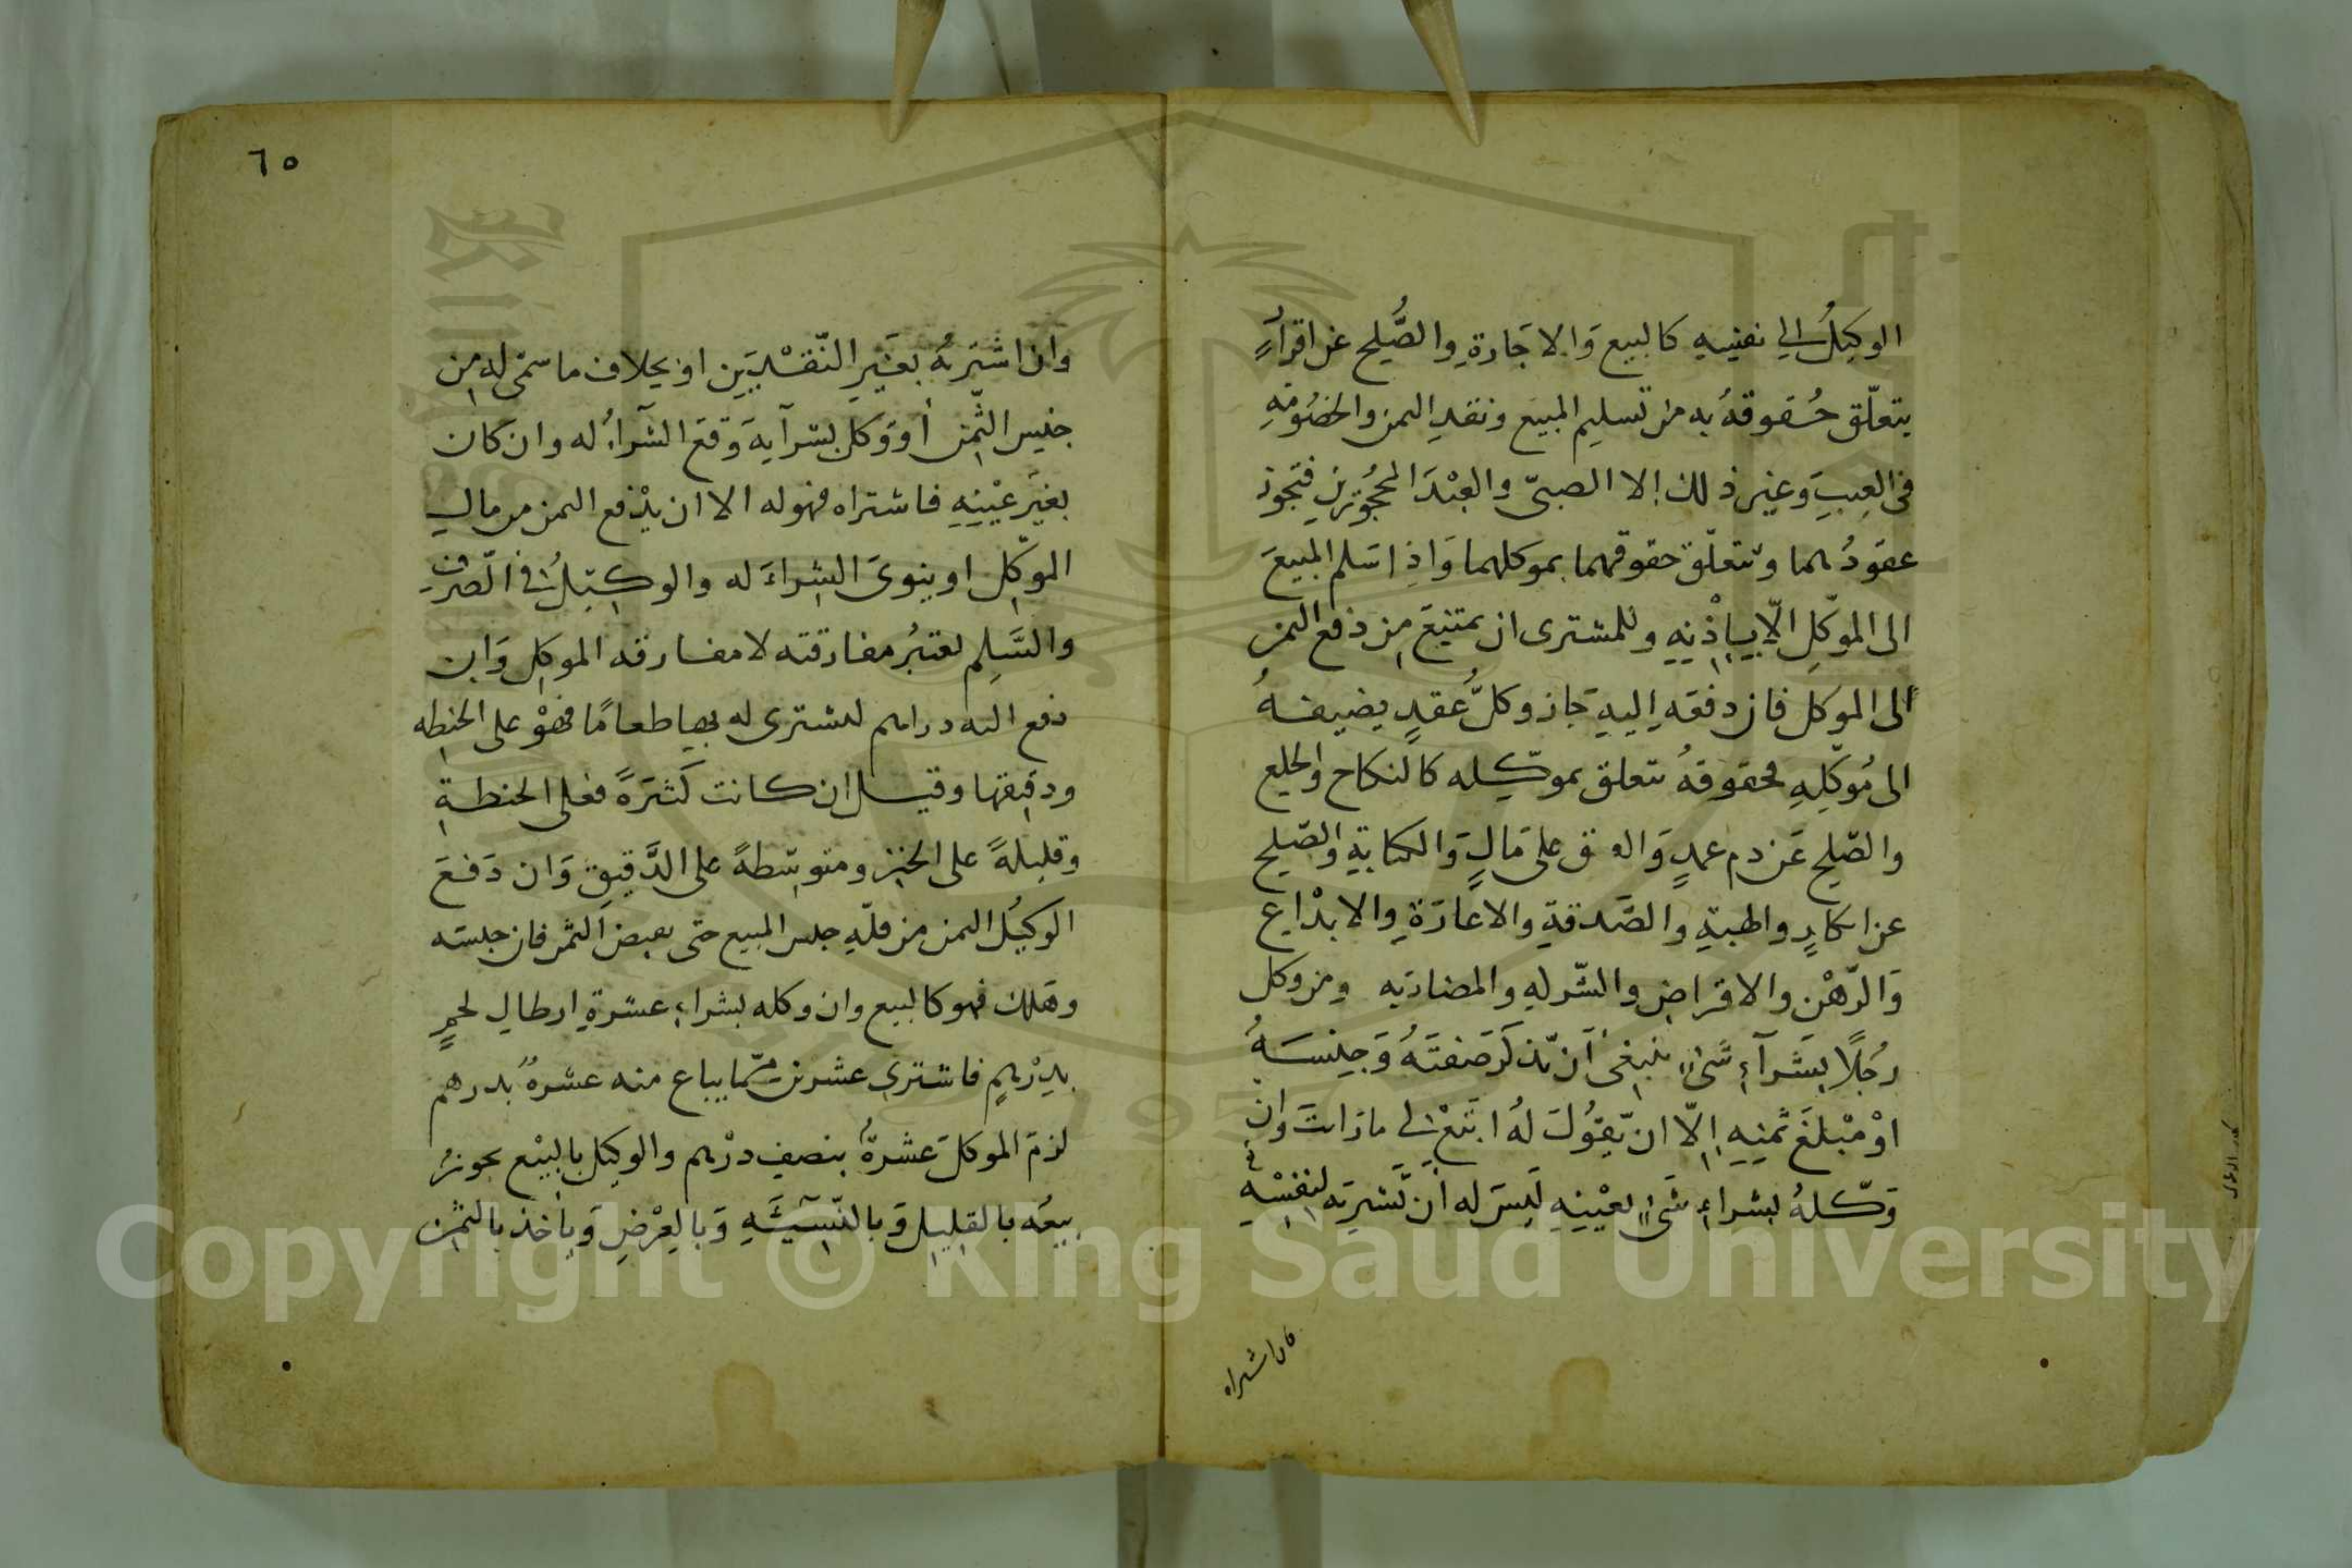 الوكيلُ الى نفسِهِ كالبيع وَالاجَارةِ والصُّلحِ عن اقرارٍ
يتعلّق حُقوقهُ به من تسليم المبيع ونقدِ الثمن والخصُومةِ
فى العيبِ وغير ذلك إلا الصبىّ والعبْدَ المحجُورَين فتجوز
عقودُهما وتتعلّق حقوقهما بموكلهما وَاذا سَلم المبيعَ
الى الموكّلِ الّا بِاِذْنِهِ وللمشترى ان يمتنِعَ مِن دفع الثمن
الى الموكل فان دفعَه اِليهِ جَاز وكلُّ عقدٍ يضيفهُ
الى مُوكّلِهِ فحقوقهُ تتعلق بموكّله كالنكاح والخلع
والصّلح عَن دم عمدٍ وَالعتق على مَالٍ وَالكتابةِ والصّلح
عن انكارٍ والهبةِ والصَّدقةِ والاعارَةِ والايدْاعِ
وَالرّهْن والاقراضِ والشركهِ والمضاربه ومن وكل
رجُلًا بِشَرآءِ شَىْءٍ ينبغى اَن يّذكرَ صفتَهُ وَجِنسَهُ
اوْ مبْلغَ ثمنِهِ اِلّا ان يّقُولَ لهُ ابتَعْ لى ما رَاَيتَ وان
وَكّلهُ بشراءِ شَىْءٍ بعيْنِهِ لَيسَ له اَن يَّشترِيَه لنفسْهِ
فان اشتراه
٦٥
وان اشترَىهُ بغيرِ النّقدَيْنِ او بخِلاف ما سَمّى له مِن
جنسِ الثّمن أو وَكل بشرآيهِ وَقعَ الشرآءُ له وان كان
بغيَر عيْنِهِ فاشتراه فهو له الا ان يدْفع الثمن من مالِ
الموَكّلِ او ينوىَ الشِراءَ له والوكيلُ فى الصّرفِ
والسَّلمِ يعتبرُ مفارقته لا مفارقه الموكل وَان
دفع اليه دراهم ليشترى له بها طعامًا فهوْ على الحنطه
ودقيقها وقيل ان كانت كثيَرةً فعلى الحنطةِ
وقليلةً على الخبز ومتوسّطةً على الدَّقيقِ وَان دَفعَ
الوكيلُ الثمن من مالهِ حبس المبيع حتى يقبض الثمن فان حبسَه
وهَلك فهو كالبيع وان وكله بشراءِ عشرةِ ارطالِ لحمٍ
بدِرْهمٍ فاشترى عشرين ممّا يباع منه عشرةٌ بدرهم
لزمَ الموكلَ عشرةٌ بنصفِ درْهم والوكيل بالبيْع يجوزُ
بيعُه بالقليلِ وَبالنّسِيْئَهِ وَبالعرْضِ وَيأخذ بالثمنِ
Copyright © King Saud University